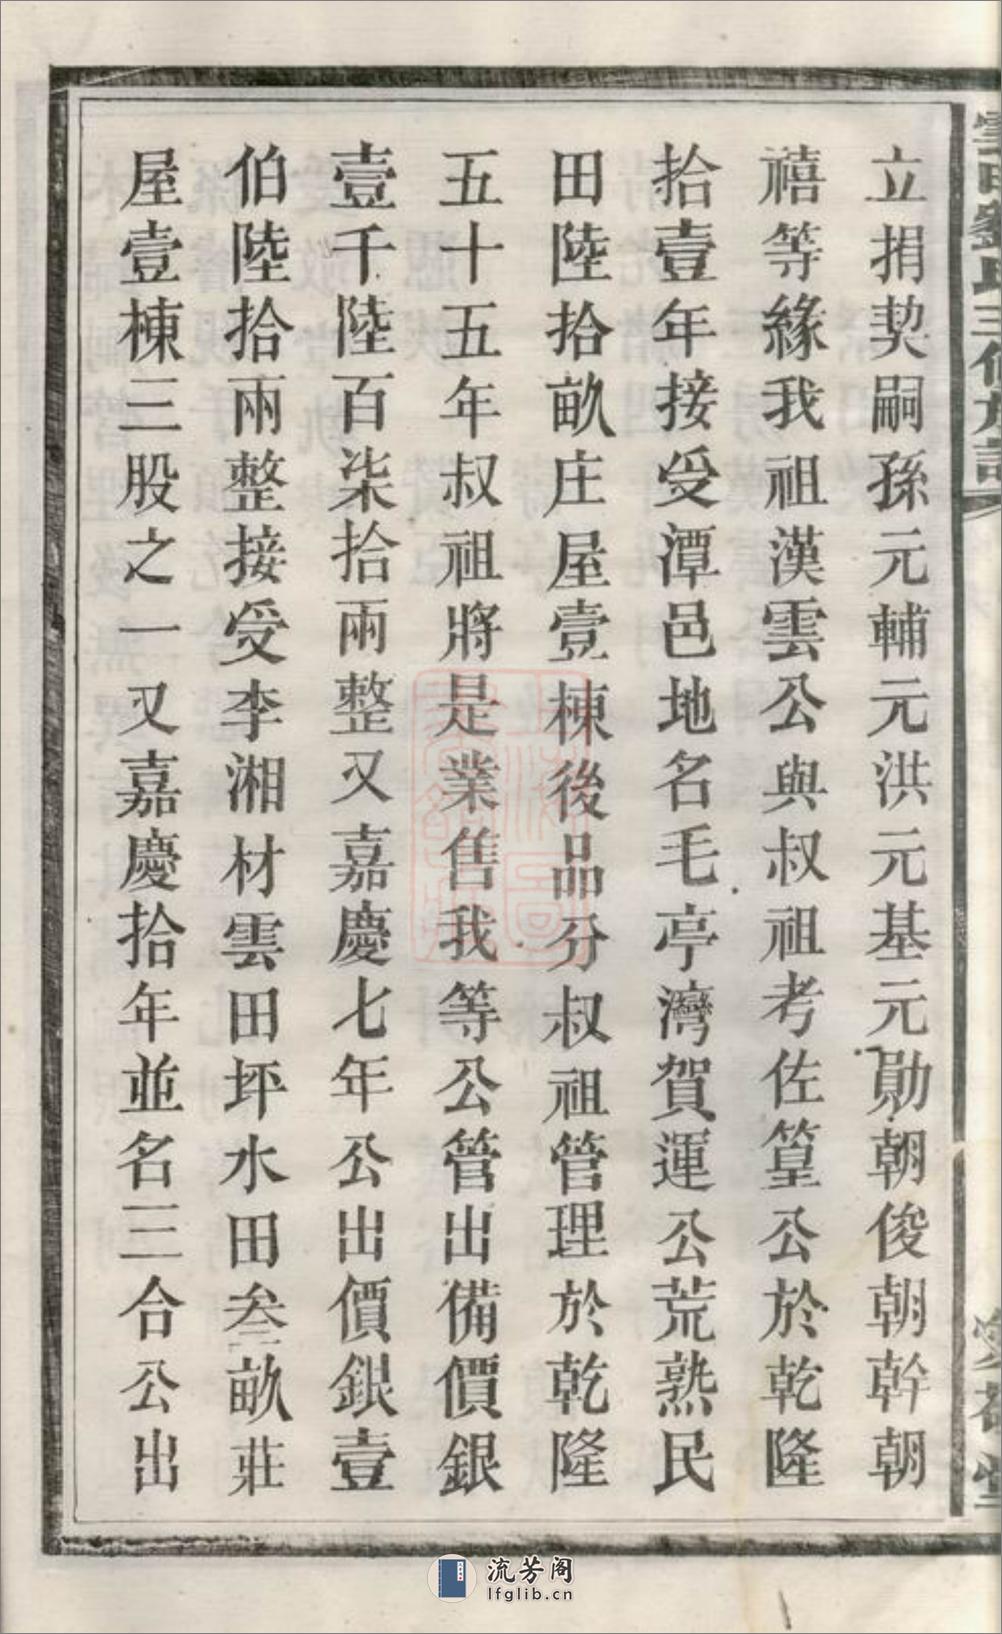 立捐契嗣孫元輔元洪元基元勛朝俊朝幹朝
禧等緣我祖漢雲公與叔祖考佐篁公於乾隆
拾壹年接受潭邑地名毛亭灣賀運公荒熟民
田陸拾畝庄屋壹棟後品分叔祖管理於乾隆
五十五年叔祖將是業售我等公管出備價銀
壹千陸百柒拾兩整又嘉慶七年公出價銀壹
伯陸拾兩整接受李湘材雲田坪水田叁畝莊
屋壹棟三股之一又嘉慶拾年並名三合公出
流芳阁
lfglib.cn